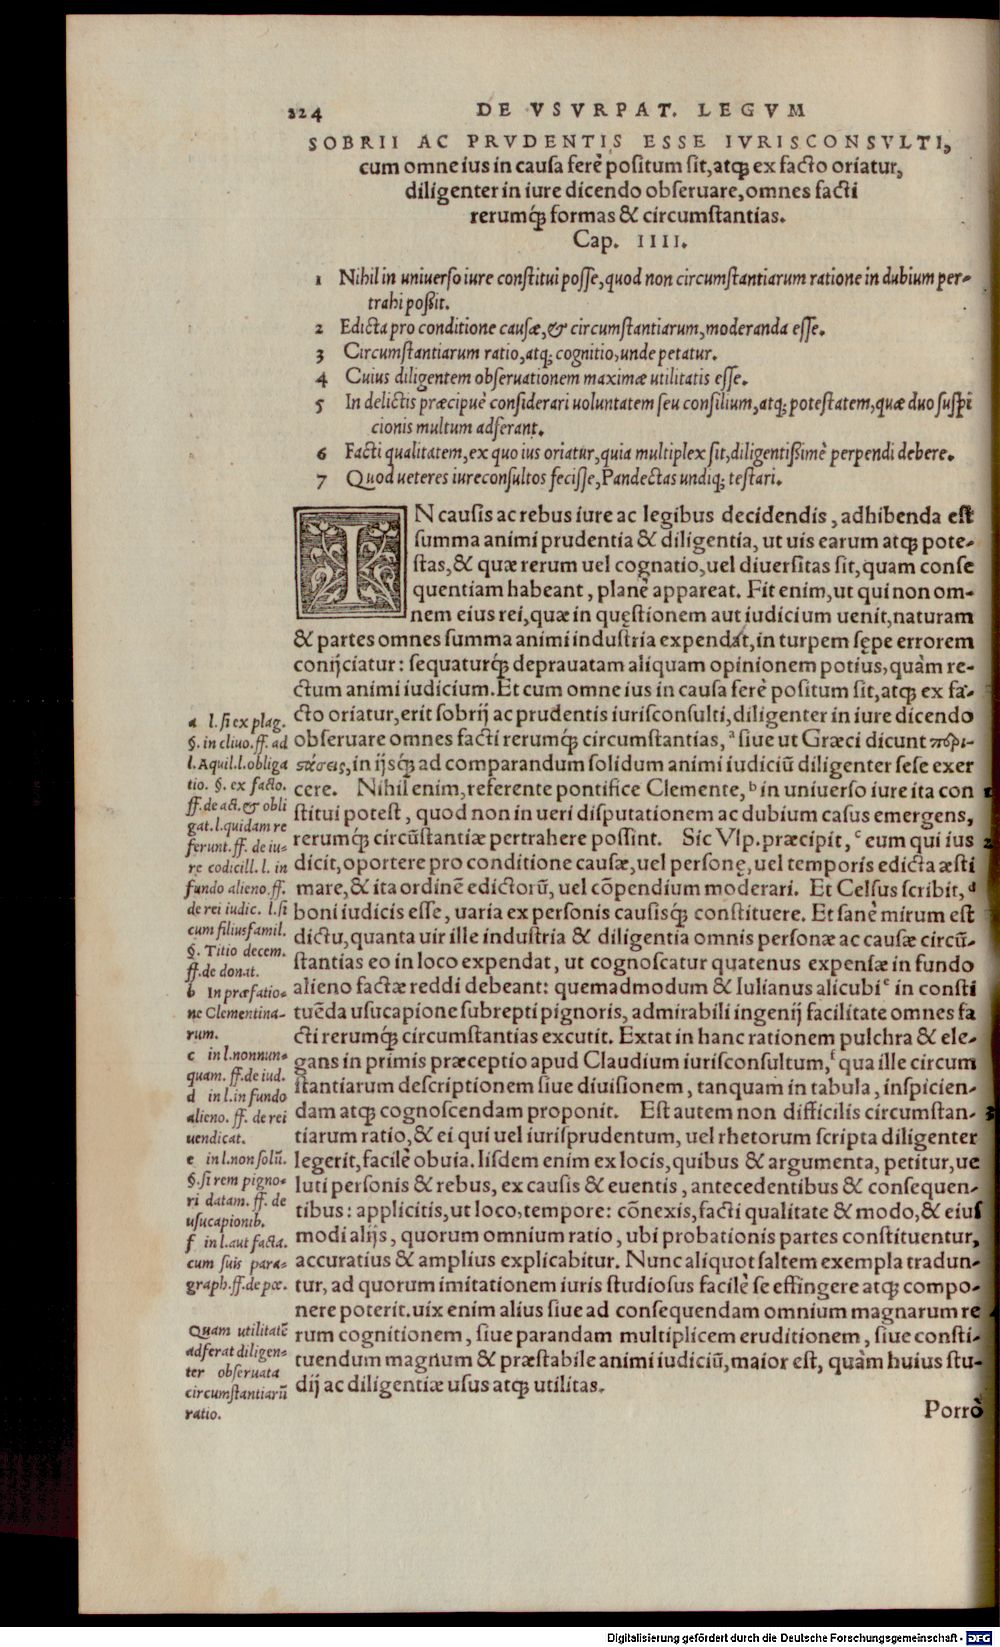 224 DE VSVRPAT. LEGVM
SOBRII AC PRVDENTIS ESSE IVRISCONSVLTI,
cum omne ius in causa ferè positum sit, atq; ex facto oriatur,
diligenter in iure dicendo obseruare, omnes facti
rerumq́; formas & circumstantias.
Cap. IIII.
1 Nihil in uniuerso iure constitui posse, quod non circumstantiarum ratione in dubium per-
trahi poßit.
2 Edicta pro conditione causæ, & circumstantiarum, moderanda esse.
3 Circumstantiarum ratio, atq; cognitio, unde petatur.
4 Cuius diligentem obseruationem maximæ utilitatis esse.
5 In delictis præcipuè considerari uoluntatem seu consilium, atq; potestatem, quæ duo suspi
cionis multum adferant.
6 Facti qualitatem, ex quo ius oriatur, quia multiplex sit, diligentißimè perpendi debere.
7 Quod ueteres iureconsultos fecisse, Pandectas undiq; testari.
IN causis ac rebus iure ac legibus decidendis, adhibenda est
summa animi prudentia & diligentia, ut uis earum atq; pote-
stas, & quæ rerum uel cognatio, uel diuersitas sit, quam conse
quentiam habeant, planè appareat. Fit enim, ut qui non om-
nem eius rei, quæ in quęstionem aut iudicium uenit, naturam
& partes omnes summa animi industria expendat, in turpem sępe errorem
conijciatur: sequaturq́; deprauatam aliquam opinionem potius, quàm re-
ctum animi iudicium. Et cum omne ius in causa ferè positum sit, atq; ex fa-
cto oriatur, erit sobrij ac prudentis iurisconsulti, diligenter in iure dicendo
obseruare omnes facti rerumq́; circumstantias, a siue ut Græci dicunt περι-
στάσεις, in ijsq́; ad comparandum solidum animi iudiciū diligenter sese exer
cere. Nihil enim, referente pontifice Clemente, b in uniuerso iure ita con 1
stitui potest, quod non in ueri disputationem ac dubium casus emergens,
rerumq́; circūstantiæ pertrahere possint. Sic Vlp. præcipit, c eum qui ius 2
dicit, oportere pro conditione causæ, uel personę, uel temporis edicta æsti
mare, & ita ordinē edictorū, uel cōpendium moderari. Et Celsus scribit, d
boni iudicis esse, uaria ex personis causisq́; constituere. Et sanè mirum est
dictu, quanta uir ille industria & diligentia omnis personæ ac causæ circū-
stantias eo in loco expendat, ut cognoscatur quatenus expensæ in fundo
alieno factæ reddi debeant: quemadmodum & Iulianus alicubi e in consti
tuēda usucapione subrepti pignoris, admirabili ingenij facilitate omnes fa
cti rerumq́; circumstantias excutit. Extat in hanc rationem pulchra & ele-
gans in primis præceptio apud Claudium iurisconsultum, f qua ille circum
stantiarum descriptionem siue diuisionem, tanquam in tabula, inspicien-
dam atq; cognoscendam proponit. Est autem non difficilis circumstan- 3
tiarum ratio, & ei qui uel iurisprudentum, uel rhetorum scripta diligenter
legerit, facilè obuia. Iisdem enim ex locis, quibus & argumenta, petitur, ue
luti personis & rebus, ex causis & euentis, antecedentibus & consequen-
tibus: applicitis, ut loco, tempore: cōnexis, facti qualitate & modo, & eius
modi alijs, quorum omnium ratio, ubi probationis partes constituentur,
accuratius & amplius explicabitur. Nunc aliquot saltem exempla tradun-
tur, ad quorum imitationem iuris studiosus facilè se effingere atq; compo-
nere poterit. uix enim alius siue ad consequendam omnium magnarum re 4
rum cognitionem, siue parandam multiplicem eruditionem, siue consti-
tuendum magnum & præstabile animi iudiciū, maior est, quàm huius stu-
dij ac diligentiæ usus atq; utilitas.
Porrò
a l. si ex plag.
§. in cliuo. ff. ad
l. Aquil. l. obliga
tio. §. ex facto.
ff. de act. & obli
gat. l. quidam re
ferunt. ff. de iu-
re codicill. l. in
fundo alieno. ff.
de rei iudic. l. si
cum filiusfamil.
§. Titio decem.
ff. de donat.
b In præfatio-
ne Clementina-
rum.
c in l. nonnun-
quam. ff. de iud.
d in l. in fundo
alieno. ff. de rei
uendicat.
e in l. non solū.
§. si rem pigno-
ri datam. ff. de
usucapionib.
f in l. aut facta.
cum suis para-
graph. ff. de pœ.
Quam utilitatē
adferat diligen-
ter obseruata
circumstantiarū
ratio.
Digitalisierung gefördert durch die Deutsche Forschungsgemeinschaft - DFG